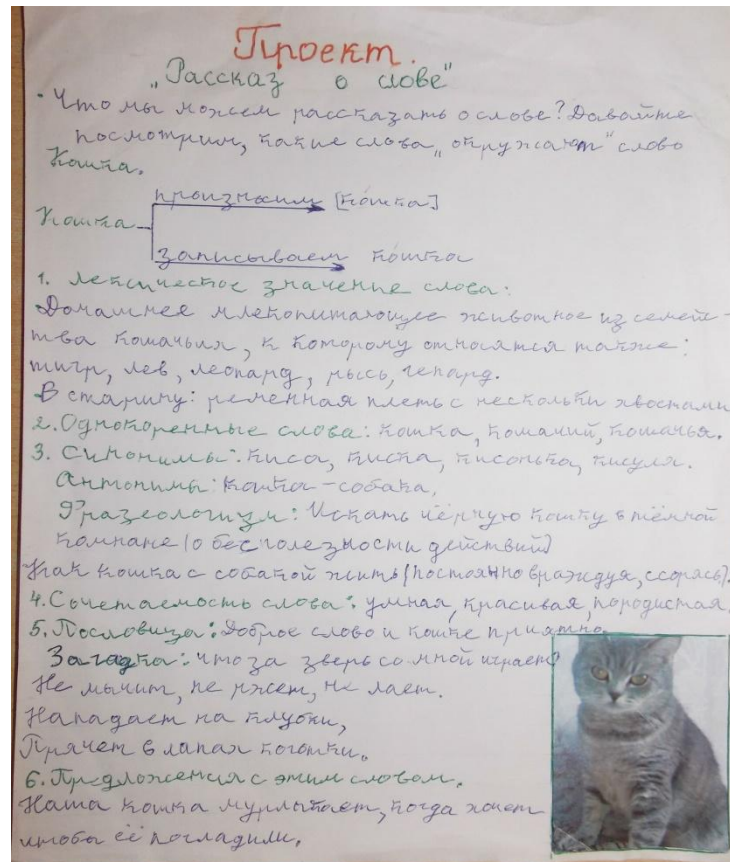 Проект.
„Рассказ о слове"
• Что мы можем рассказать о слове? Давайте
посмотрим, какие слова „окружают" слово
Кошка.
произносим [кошка]
Кошка
записываем кошка
1. Лексическое значение слова:
Домашнее млекопитающее животное из семейс-
тва кошачьих, к которому относятся также:
тигр, лев, леопард, рысь, гепард.
В старину: ременная плеть с нескольки хвостами
2. Однокоренные слова: кошка, кошачий, кошачья.
3. Синонимы: киса, киска, кисонька, кисуля.
Антонимы: кошка-собака,
Фразеологизм: Искать чёрную кошку в тёмной
комнате (о бесполезности действий)
Как кошка с собакой жить (постоянно враждуя, ссорясь).
4. Сочетаемость слова: умная, красивая, породистая.
5. Пословица: Доброе слово и кошке приятно.
Загадка: что за зверь со мной играет?
Не мычит, не ржет, не лает.
Нападает на клубки,
Прячет в лапах коготки.
6. Предложения с этим словом.
Наша кошка мурлыкает, когда хочет
чтобы её погладили.